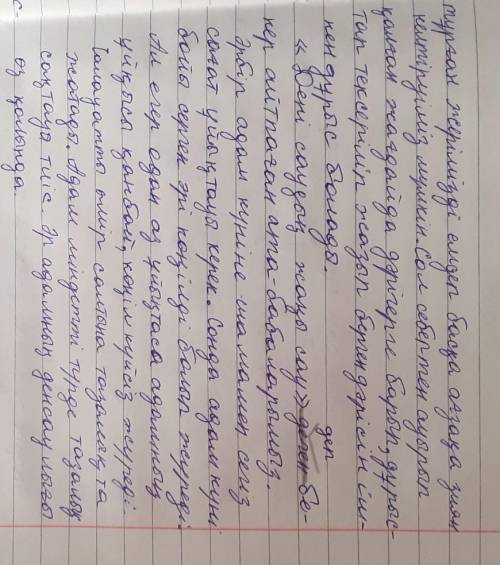 тұрған жерімізді емдеп басқа ағзаға зиян
келтіруіміз мүмкін. Сол себептен ауырып
қалған жағдайда дәрігерге барып, дұрыс-
тап тексеріліп жазып бергендәрісін іш-
кен дұрыс болады.
«Дені саудың жаны сау» деп бе-
кер айтпаған ата-бабаларымыз.
Әрбір адам күніне шамамен сегіз
сағат ұйықтауы керек. Сонда адам күні
бойы сергек әрі көңілді болып жүреді.
Ал егер одан аз ұйықтаса адамның
ұйқысы қанбай, көңіл күйсіз жүреді.
Салауатты өмір салтына тазалық та
жатады. Адам міндетті түрде тазалық
сақтауы тиіс. Әр адамның денсаулығы
өз қолында.
с-